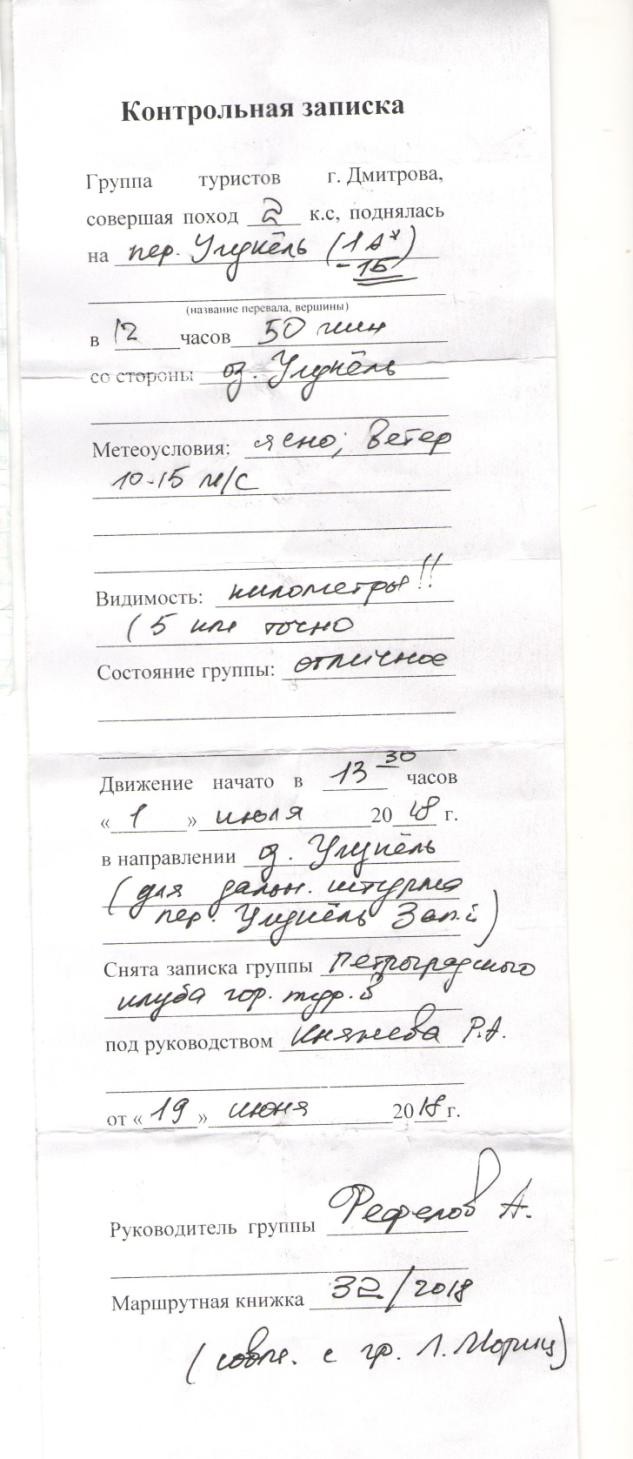 Контрольная записка
Группа туристов г. Дмитрова,
совершая поход 2 к.с, поднялась
на пер. Улункёль (1А*
-1Б)
(название перевала, вершины)
в 12 часов 50 мин
со стороны оз. Улункёль
Метеоусловия: ясно; ветер
10-15 м/с
Видимость: километры!!
(5 км точно
Состояние группы: отличное
Движение начато в 13 30 часов
« 1 » июля 20 18 г.
в направлении д. Улункёль
(для дальн. штурма
пер. Улункёль Зап.й)
Снята записка группы Петроградского
клуба гор. тур.
под руководством Княжева Р.А.
от « 19 » июня 20 18 г.
Руководитель группы Фефелов А.
Маршрутная книжка 32/2018
(совм. с гр. Л. Мориц)